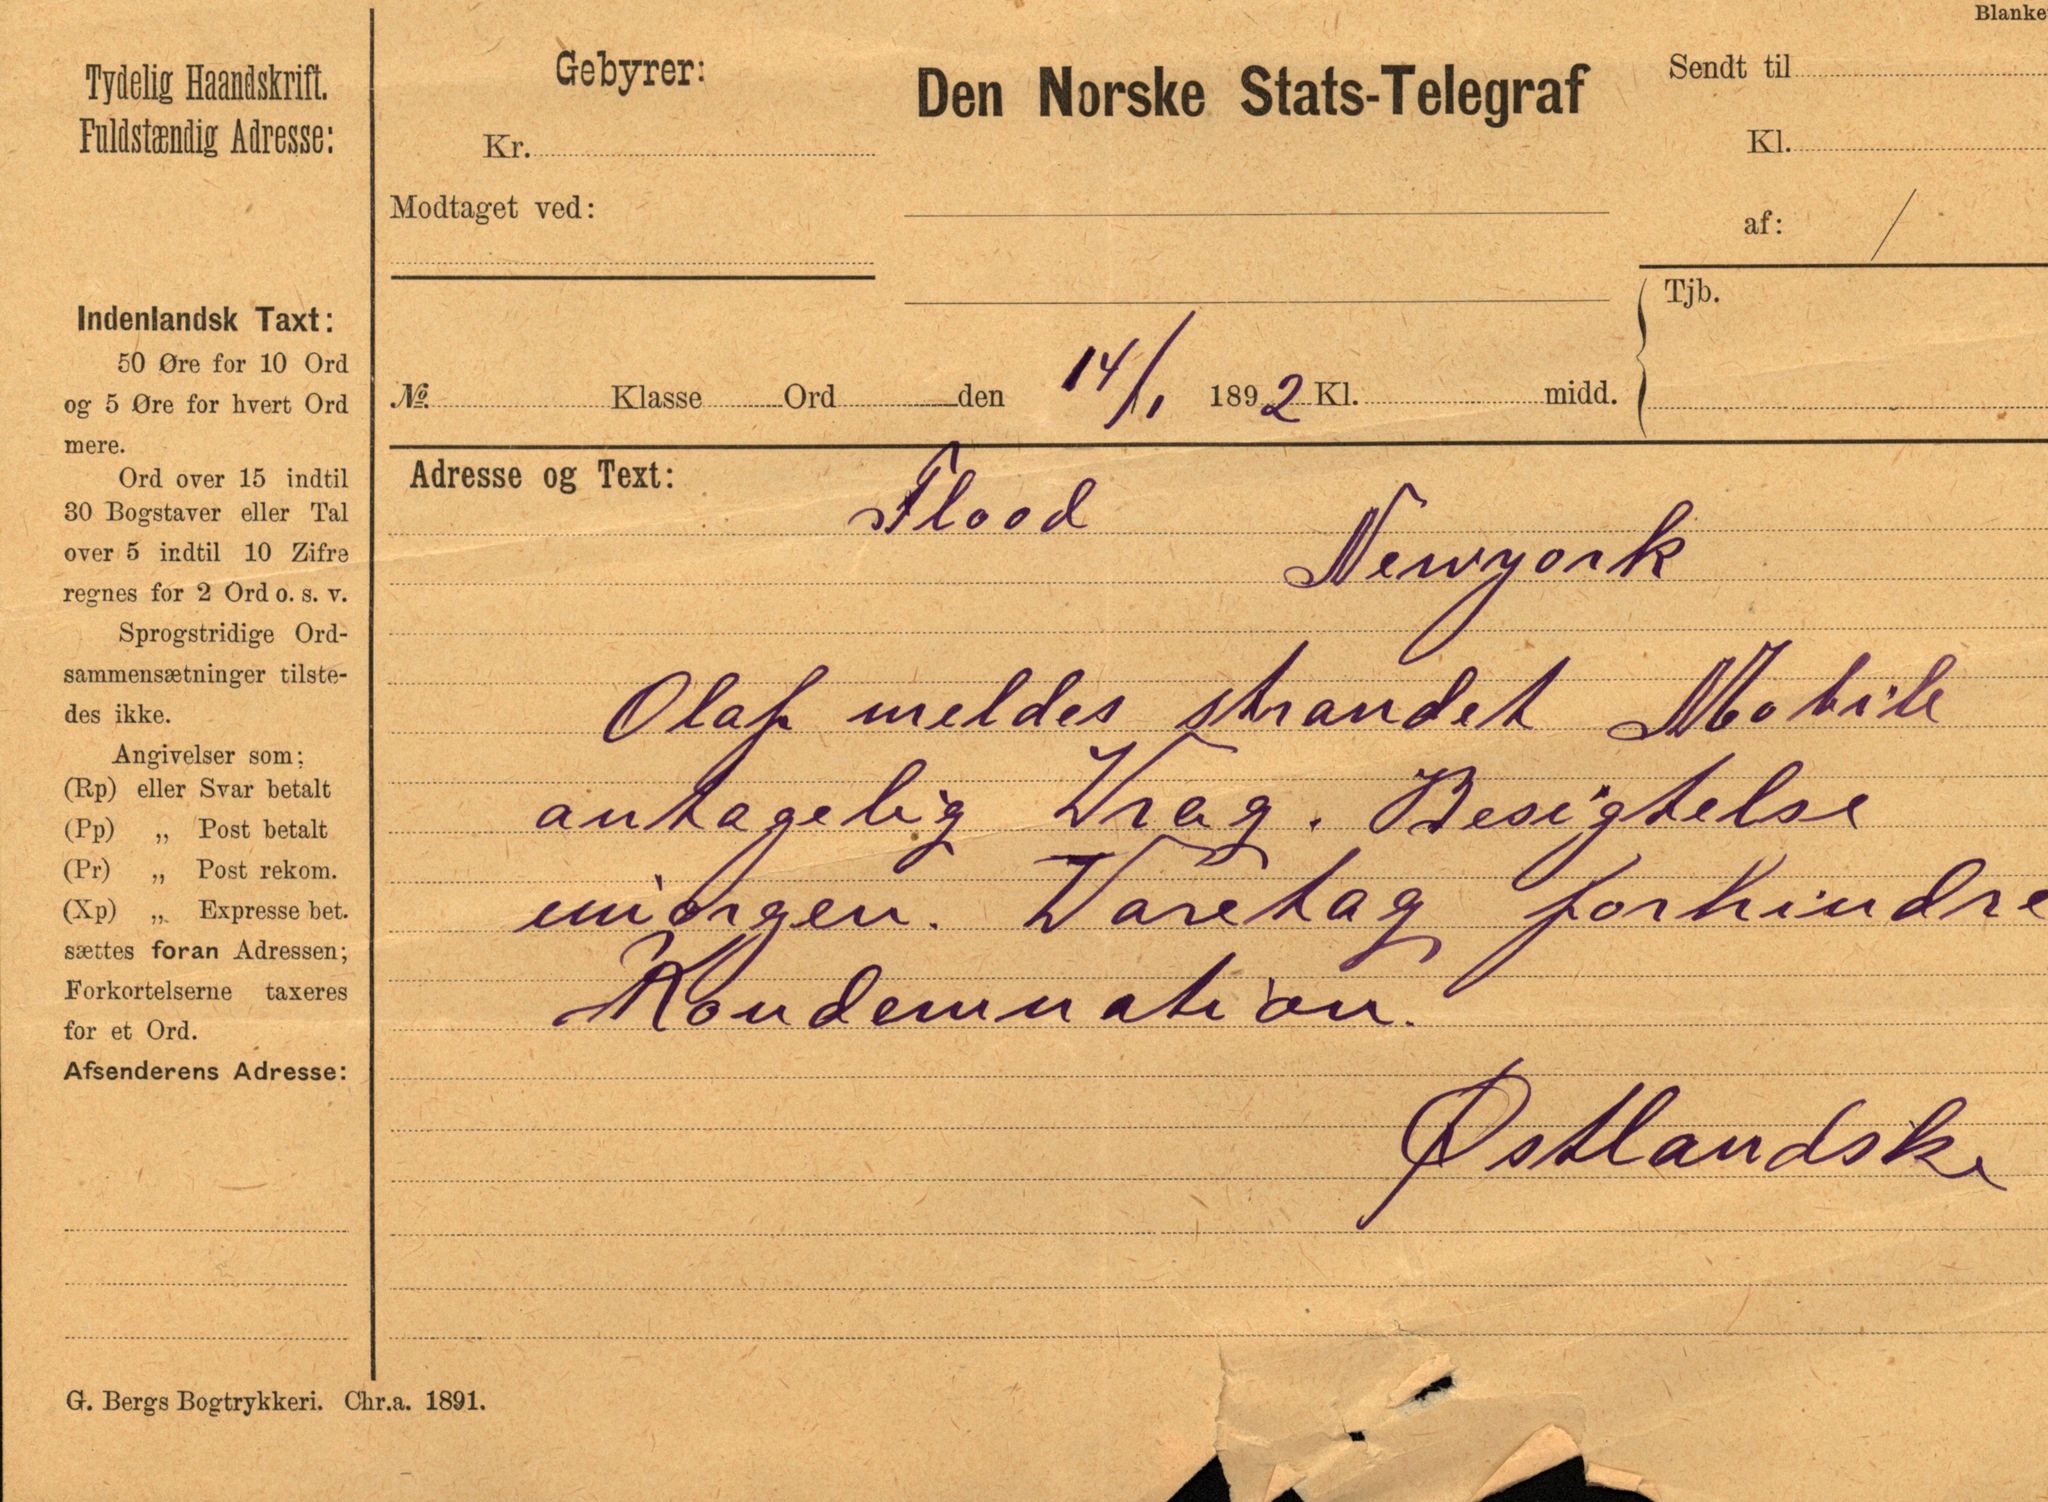 Blanke
Tydelig Haandskrift.
Fuldstændig Adresse:
Gebyrer:
Kr.
Modtaget ved:
Den Norske Stats-Telegraf
Sendt til
Kl.
af: /
Tjb.
№ Klasse Ord den 14/1 1892 Kl. midd.
Indenlandsk Taxt:
50 Øre for 10 Ord
og 5 Øre for hvert Ord
mere.
Ord over 15 indtil
30 Bogstaver eller Tal
over 5 indtil 10 Zifre
regnes for 2 Ord o. s. v.
Sprogstridige Ord-
sammensætninger tilste-
des ikke.
Angivelser som:
(Rp) eller Svar betalt
(Pp) „ Post betalt
(Pr) „ Post rekom.
(Xp) „ Expresse bet.
sættes foran Adressen;
Forkortelserne taxeres
for et Ord.
Afsenderens Adresse:
Adresse og Text:
Flood
Newyork
Olaf meldes strandet Mobile
antagelig Vrag. Besigtelse
imorgen. Varetag forhindre
Kondemnation.
Østlandske
G. Bergs Bogtrykkeri. Chr.a. 1891.